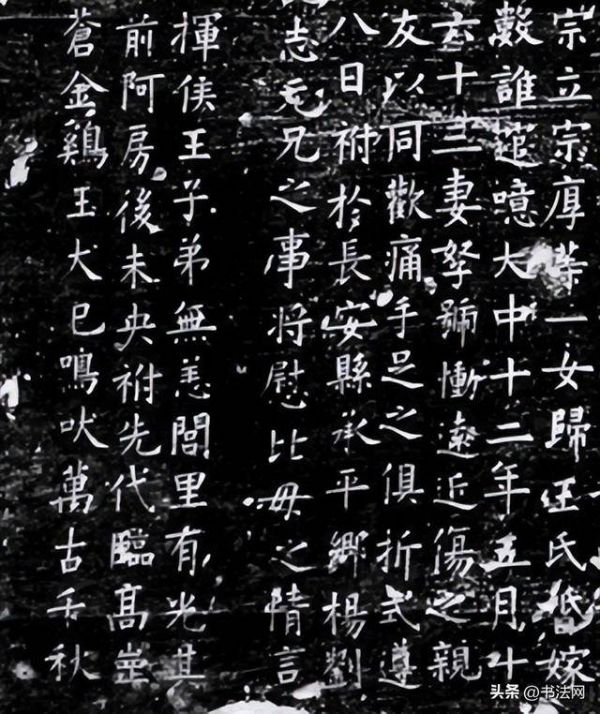 宗立宗厚一女歸王氏嫁
數誰逭噫大中十二年五月廿
六十三妻孥號慟遠近傷之親
友以同歡痛手足之俱折式遵
八日祔於長安縣承平鄉楊劉
志兄之事將慰比毋之情言
揮侯王子弟無恙閭里有光其
前阿房後未央祔先代臨高
蒼金鷄玉犬已鳴吠萬古千秋
头条@书法网